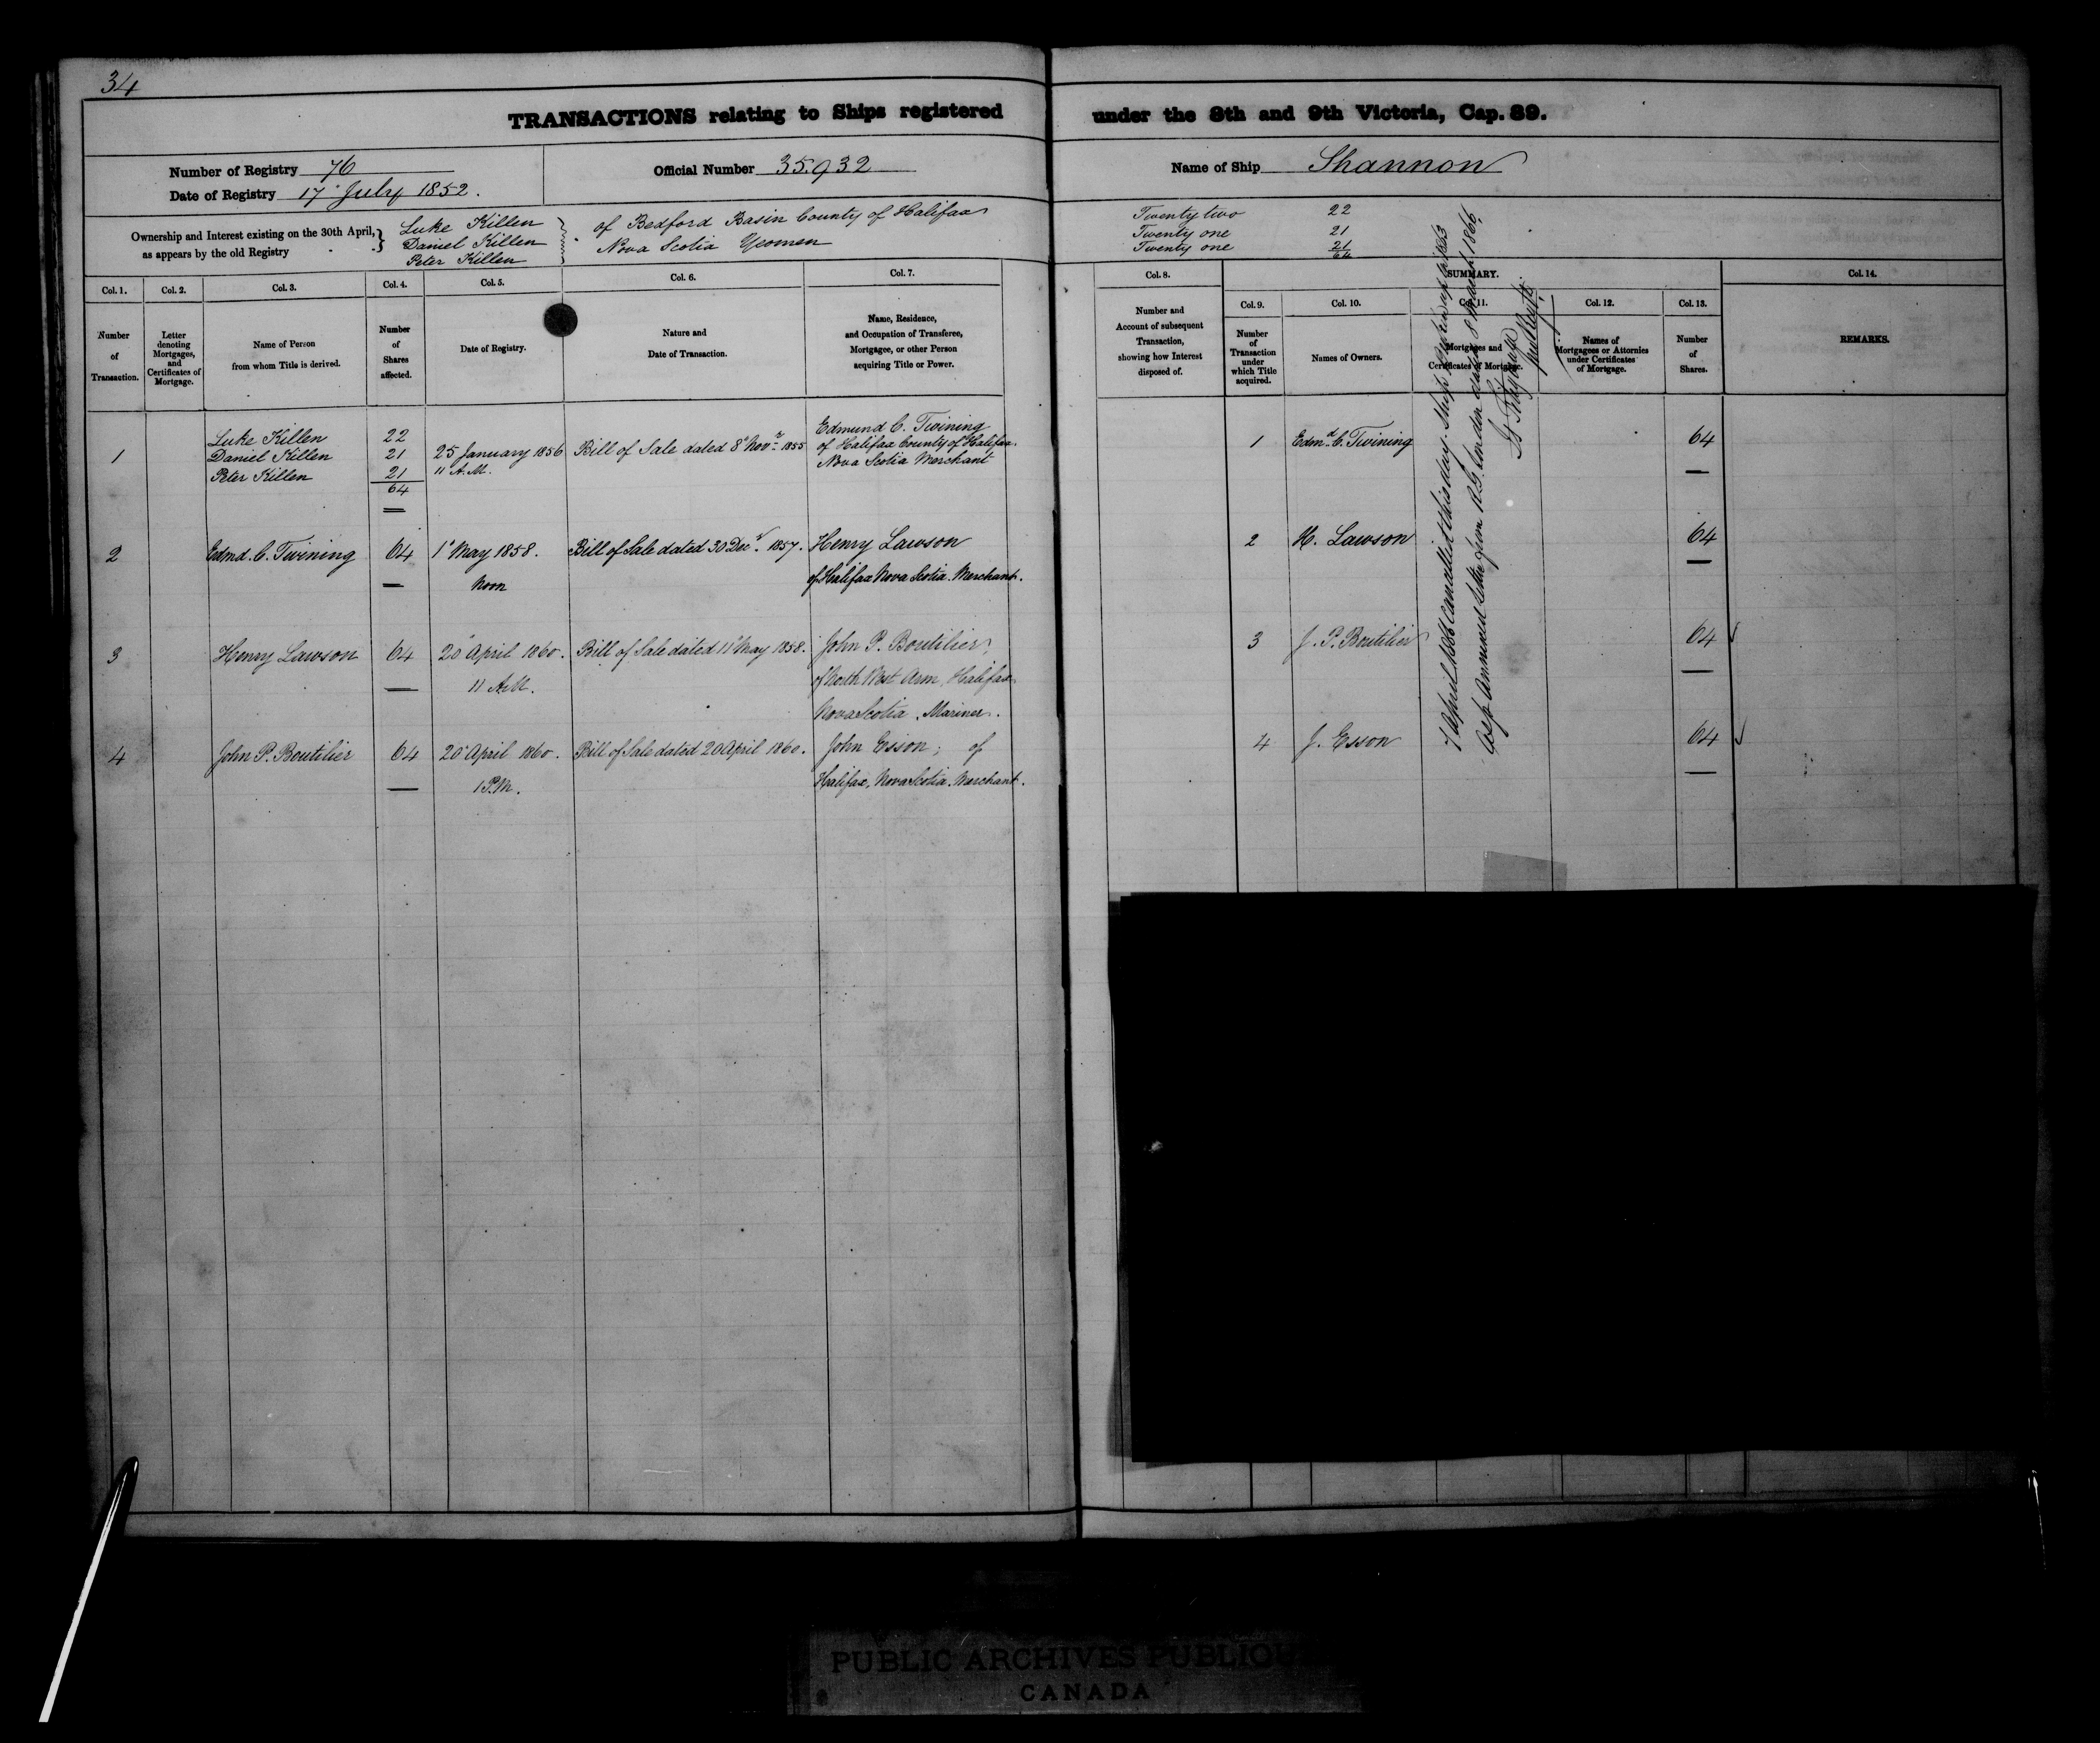 34
TRANSACTIONS relating to Ships registered under the 8th and 9th Victoria, Cap. 89.
Number of Registry 76
Date of Registry 17 July 1852.
Official Number 35.932
Name of Ship Shannon
Ownership and Interest existing on the 30th April,
as appears by the old Registry
Luke Killen
Daniel Killen
Peter Killen
of Bedford Basin County of Halifax
Nova Scotia Yeomen
Twenty two 22
Twenty one 21
Twenty one 21
64
Col. 1. Col. 2. Col. 3. Col. 4. Col. 5. Col. 6. Col. 7.
Number
of
Transaction.
Letter
denoting
Mortgages,
and
Certificates of
Mortgage.
Name of Person
from whom Title is derived.
Number
of
Shares
affected.
Date of Registry.
Nature and
Date of Transaction.
Name, Residence,
and Occupation of Transferee,
Mortgagee, or other Person
acquiring Title or Power.
Col. 8.
Number and
Account of subsequent
Transaction,
showing how Interest
disposed of.
SUMMARY.
Col. 9. Col. 10. Col. 11. Col. 12. Col. 13.
Number
of
Transaction
under
which Title
acquired.
Names of Owners.
Mortgages and
Certificates of Mortgage.
Names of
Mortgagees or Attornies
under Certificates
of Mortgage.
Number
of
Shares.
Col. 14.
REMARKS.
1
Luke Killen 22
Daniel Killen 21
Peter Killen 21
64
25 January 1856
11 A.M.
Bill of Sale dated 8 Novr 1855
Edmund C. Twining
of Halifax County of Halifax.
Nova Scotia Merchant
1 Edmd C. Twining 64
2 Edmd. C. Twining 64 1 May 1858.
Noon
Bill of Sale dated 30 Decr. 1857.
Henry Lawson
of Halifax Nova Scotia. Merchant.
2 H. Lawson 64
3 Henry Lawson 64 20 April 1860.
11 A.M.
Bill of Sale dated 11 May 1858.
John P. Boutilier,
of North West Arm, Halifax
Nova Scotia. Mariner.
3 J. P. Boutilier 64
4 John P. Boutilier 64 20 April 1860.
1 P.M.
Bill of Sale dated 20 April 1860.
John Esson; of
Halifax, Nova Scotia. Merchant.
4 J. Esson 64
7 April 1866 Cancelled this day. Ship broken up in 1863
as p annexed letter from R.G. London dated 8 March 1866.
PUBLIC ARCHIVES PUBLIQU
CANADA